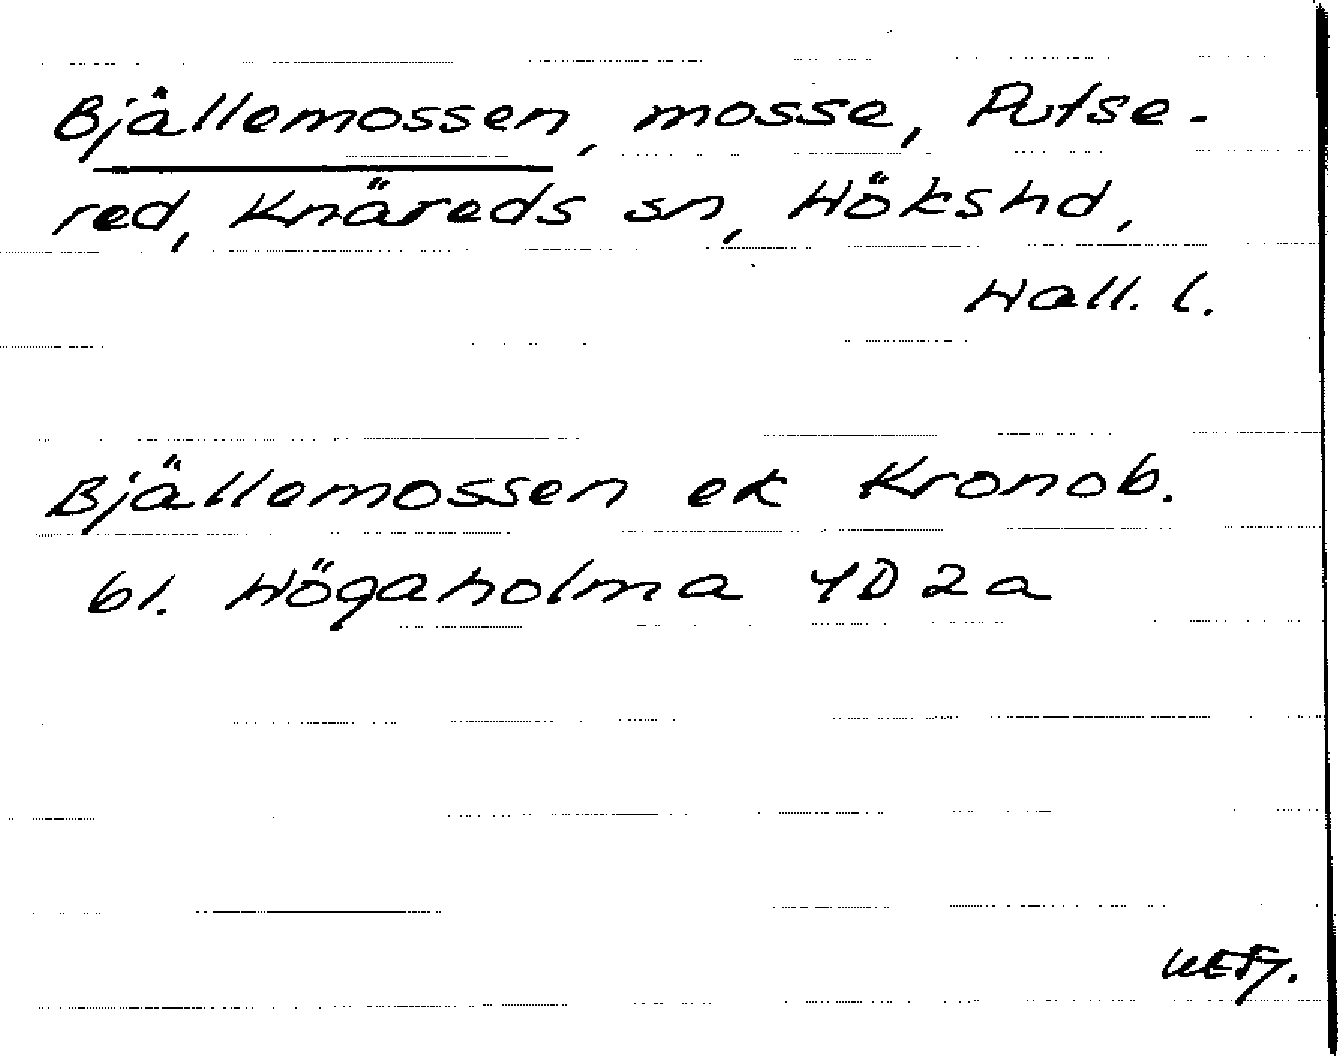 Bjällemossen, mosse, Putse-
red, Knäreds sn, Hökshd,
Hall. l.
Bjällemossen ek Kronob.
bl. Högaholma 4D2a